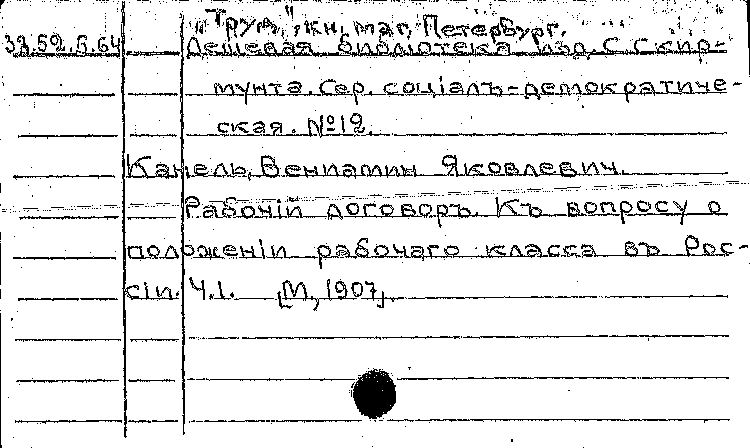 "Труд," кн. маг. Петербург.
32.52.5.64 Дешевая библіотека изд. С Скир-
мунта. Сер. соціалъ-демократиче-
ская. №12.
Канель, Веніамин Яковлевич.
Рабочій договоръ. Къ вопросу о
положеніи рабочаго класса въ Рос-
сіи. Ч.I. [М., 1907].